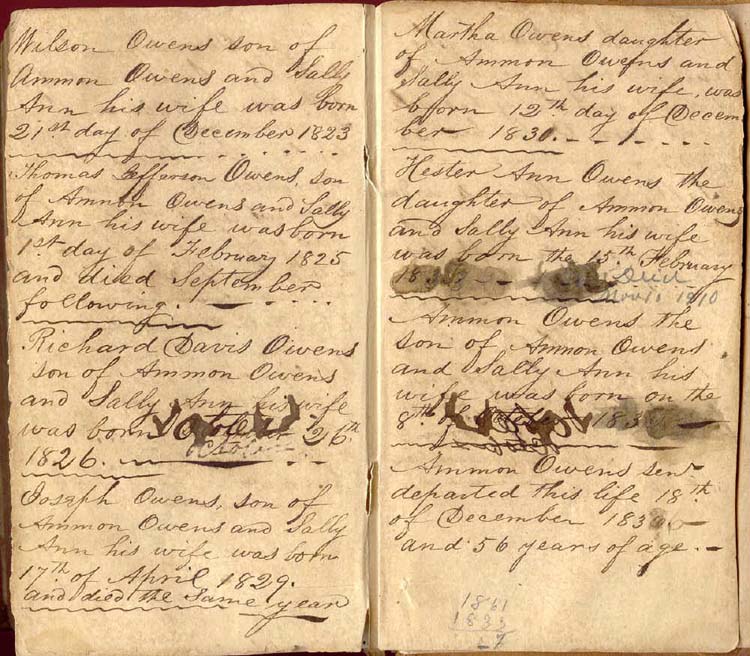 Wilson Owens son of
Ammon Owens and Sally
Ann his wife was born
21st day of December 1823
Thomas Jefferson Owens, son
of Ammon Owens and Sally
Ann his wife was born
1st day of February 1825
and died September
following.
Richard Davis Owens
son of Ammon Owens
and Sally Ann his wife
was born October 26th
1826.
Joseph Owens, son of
Ammon Owens and Sally
Ann his wife was born
17th of April 1829.
and died the same year
Martha Owens daughter
of Ammon Owens and
Sally Ann his wife, was
born 12th day of Decem
ber 1830.
Hester Ann Owens the
daughter of Ammon Owens
and Sally Ann his wife
was born the 15th February
Died
1910
Ammon Owens the
son of Ammon Owens
and Sally Ann his
wife was born on the
8th of
Ammon Owens senr
departed this life 18th
of December
and 56 years of age.
1861
1833